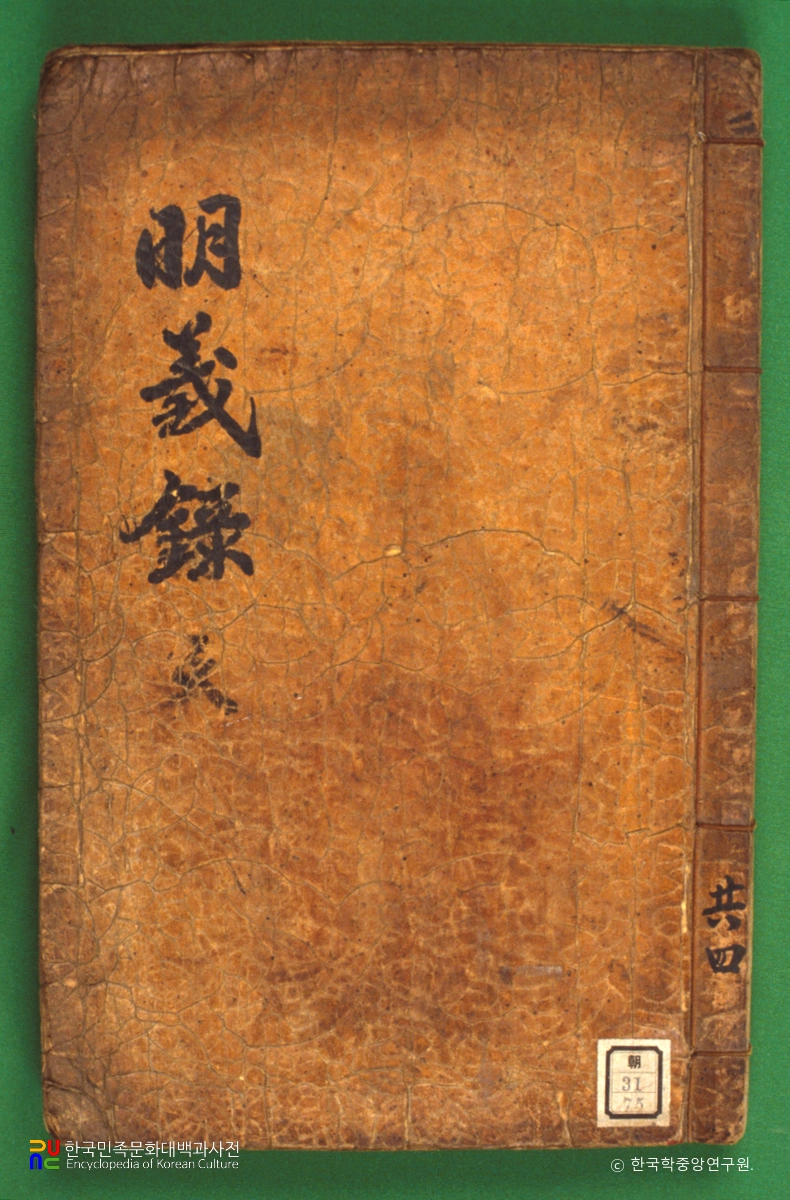 明義錄
共四
朝
31
75
한국민족문화대백과사전
Encyclopedia of Korean Culture
ⓒ 한국학중앙연구원.